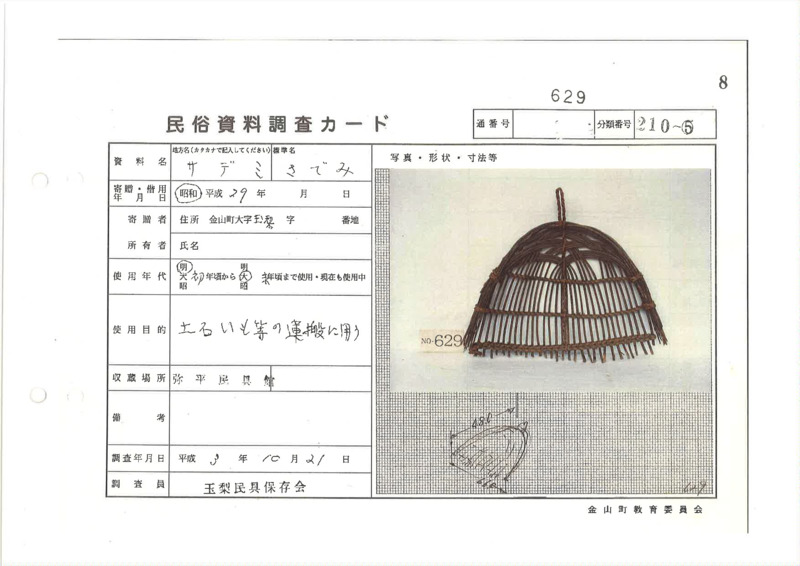 8
629
民俗資料調査カード
通番号
分類番号 210~6
資料名
地方名(カタカナで記入してください) サデミ
標準名 さでみ
寄贈・借用年月日 昭和 平成 29年 月 日
寄贈者 住所 金山町大字玉梨 字 番地
所有者 氏名
使用年代 明 大 昭 初年頃から 明 大 昭 末年頃まで使用・現在も使用中
使用目的 土石いも等の運搬に用う
収蔵場所 弥平民具館
備考
調査年月日 平成 3年 10月 21日
調査員 玉梨民具保存会
写真・形状・寸法等
NO-629
480
629
金山町教育委員会